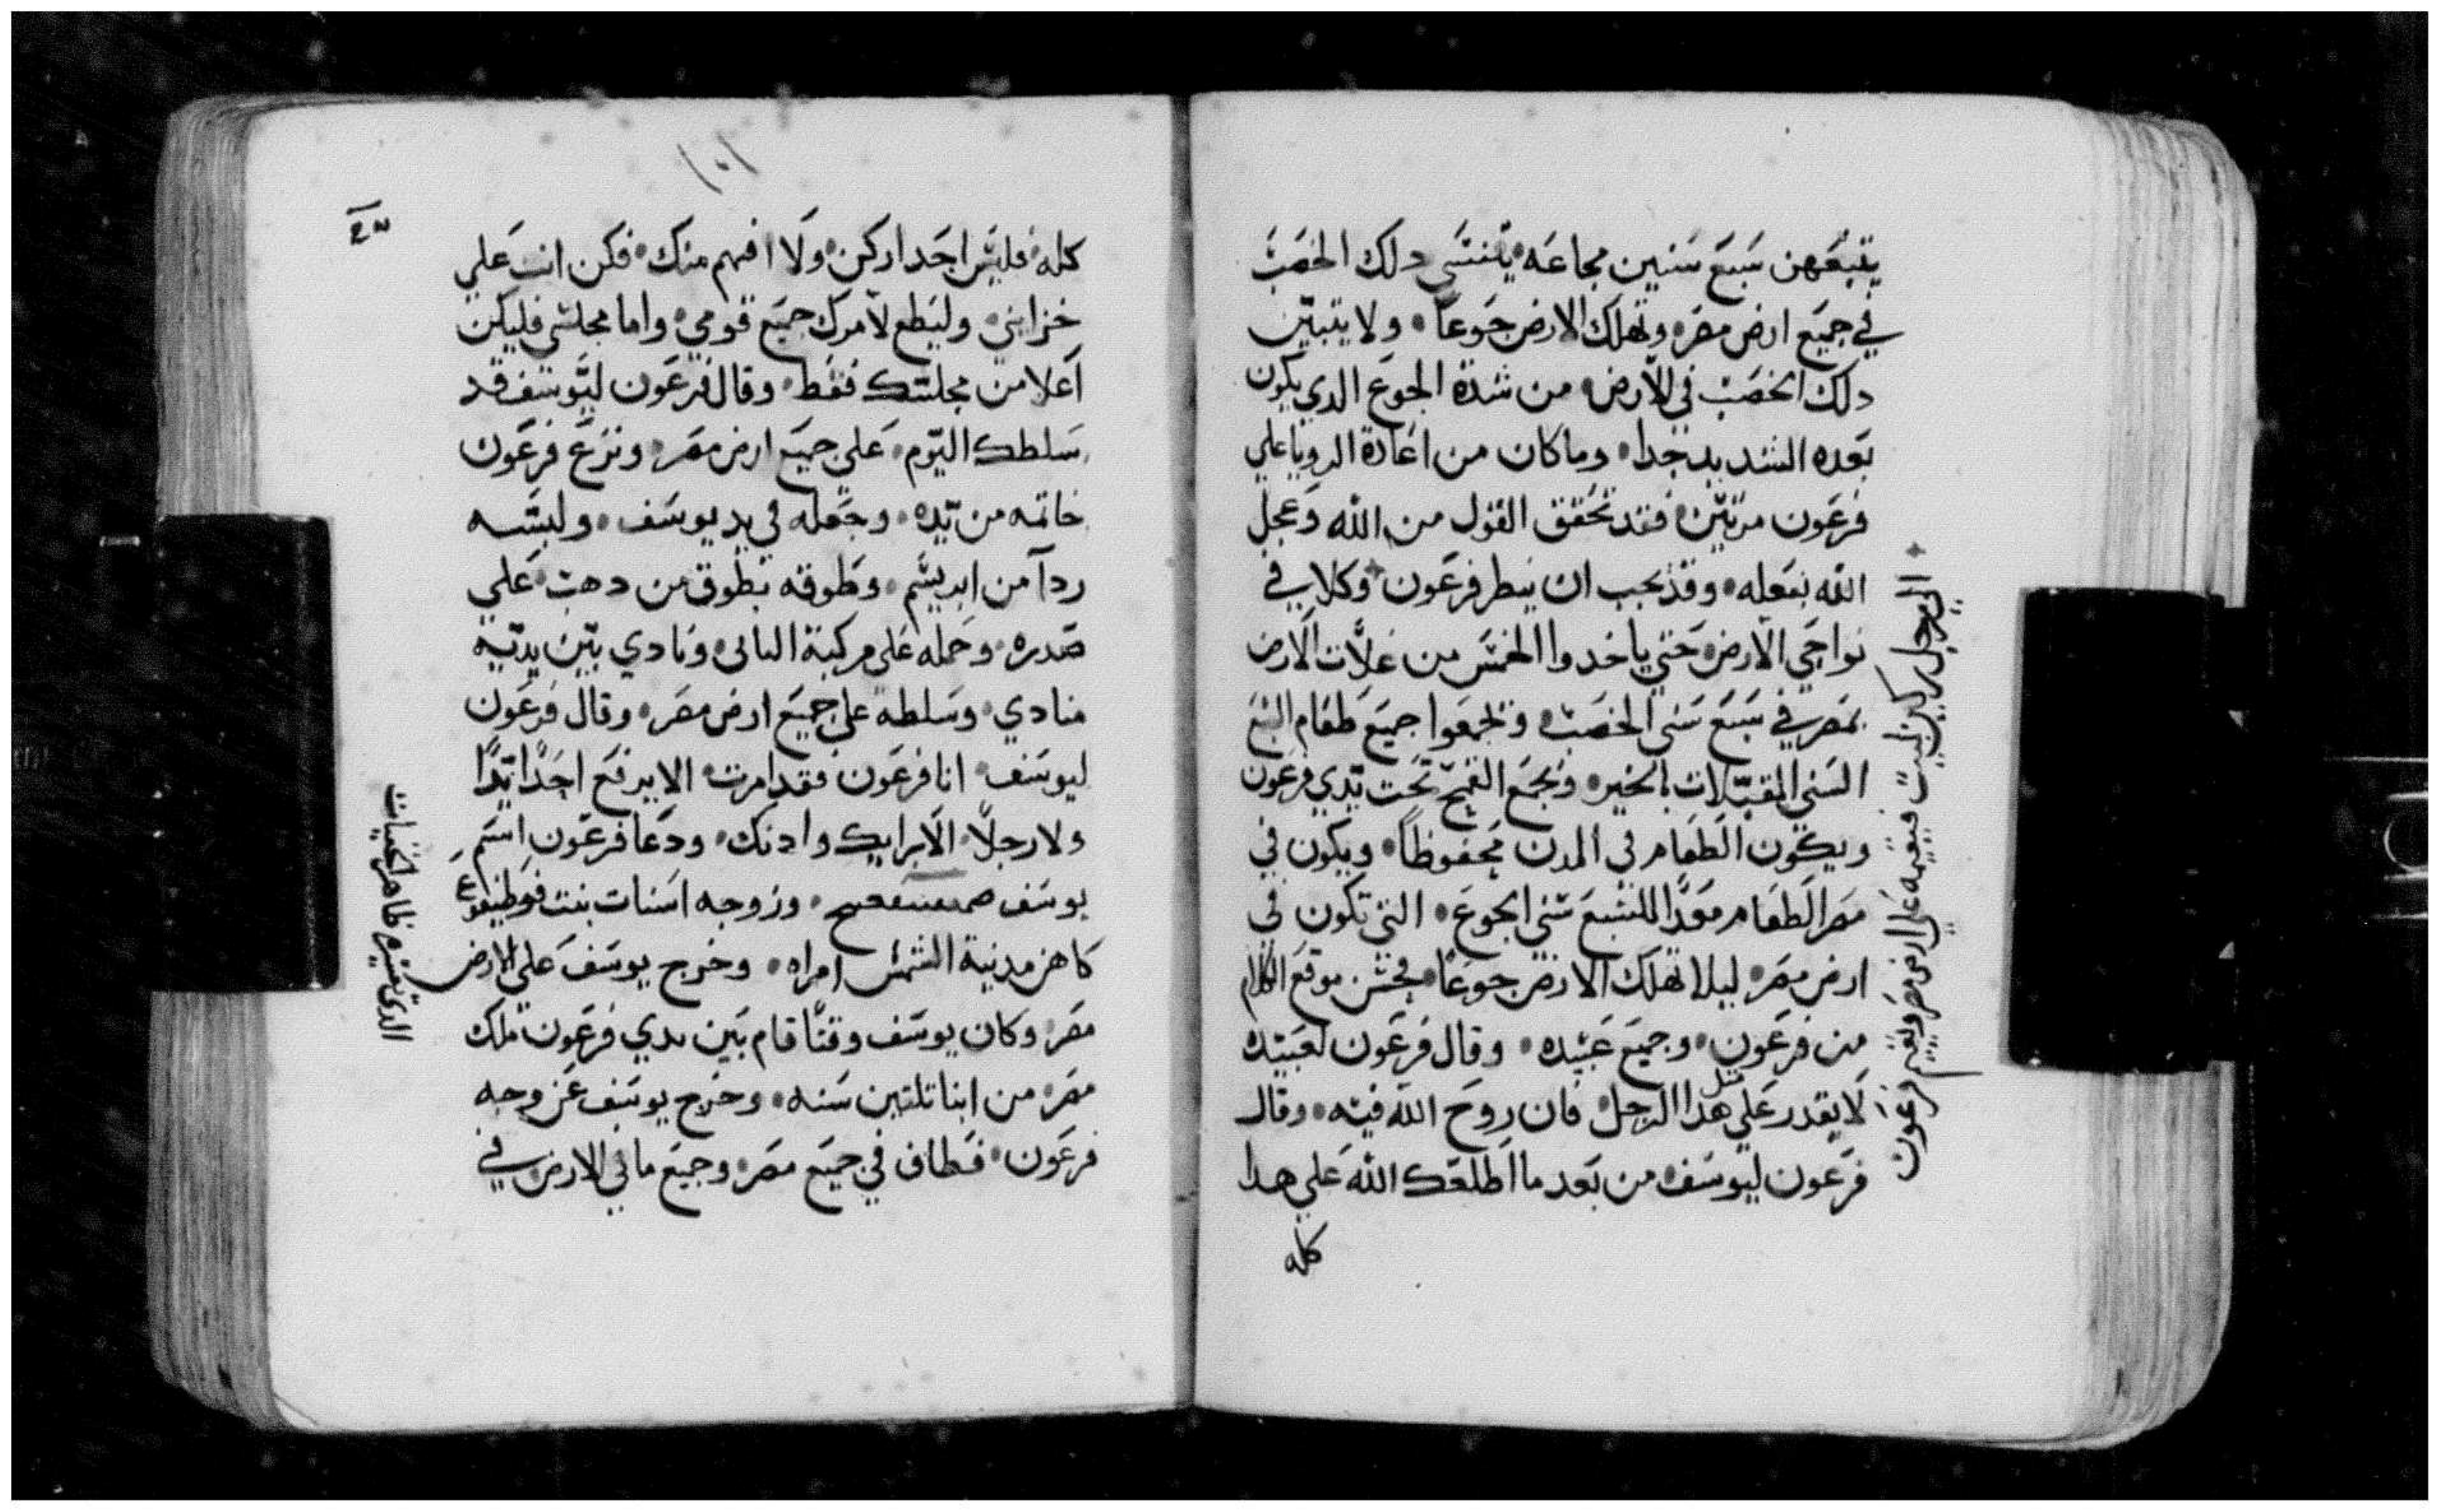 يتبعهن سبع سنين مجاعه يتنسي دلك الخصب
في جميع ارض مصر وتهلك الارض جوعاً ولا يتبين
دلك الخصب في الارض من شدة الجوع الدي يكون
بعده الشديد جدا وما كان من اعادة الرويا علي
فرعون مرتين فقد تحقق القول من الله وعجل
الله بفعله وقد يجب ان ينطر فرعون وكلا في
نواحي الارض حتي ياخدوا الخمس من غلات الارض
بمصر في سبع سني الخصب وتجمعوا جميع طعام السبع
السني المقبلات بالخير ونجمع القمح تحت يدي فرعون
ويكون الطعام في المدن محفوظاً ويكون في
مصر الطعام معداً للسبع سني الجوع التي تكون في
ارض مصر ليلا تهلك الارض جوعاً فحسن موقع الكلام
من فرعون وجميع عبيده وقال فرعون لعبيده
لا يقدر علي مثل هدا الرجل فان روح الله فيه وقال
فرعون ليوسف من بعد ما اطلعك الله علي هدا
كله
الي رجل لبيب فيقيمه علي ارض مصر ويقيم فرعون
١٠١
كله فليس احد اركن ولا افهم منك فكن انت علي
خزايني وليطع لامرك جميع قومي واما مجلسي فليكن
اعلا من مجلسك فقط وقال فرعون ليوسف قد
سلطك اليوم علي جميع ارض مصر ونزع فرعون
خاتمه من يده وجعله في يد يوسف ولبسه
ردآ من ابريسم وطوقه بطوق من دهب علي
صدره وحمله علي مركبة الثاني ونادي بين يديه
منادي وسلطه علي جميع ارض مصر وقال فرعون
ليوسف انا فرعون فقد امرت الا يرفع احداً يداً
ولا رجلاً الا برايك وادنك ودعا فرعون اسم
يوسف وزوجه اسنات بنت فوطيفرع
كاهن مدينة الشمس امراه وخرج يوسف علي الارض
مصر وكان يوسف وقتاً قام بين يدي فرعون ملك
مصر من ابنا تلتين سنه وخرج يوسف عن وجه
فرعون فطاف في جميع مصر وجميع ما في الارض في
الدي تفسيره ظاهر الخفيات